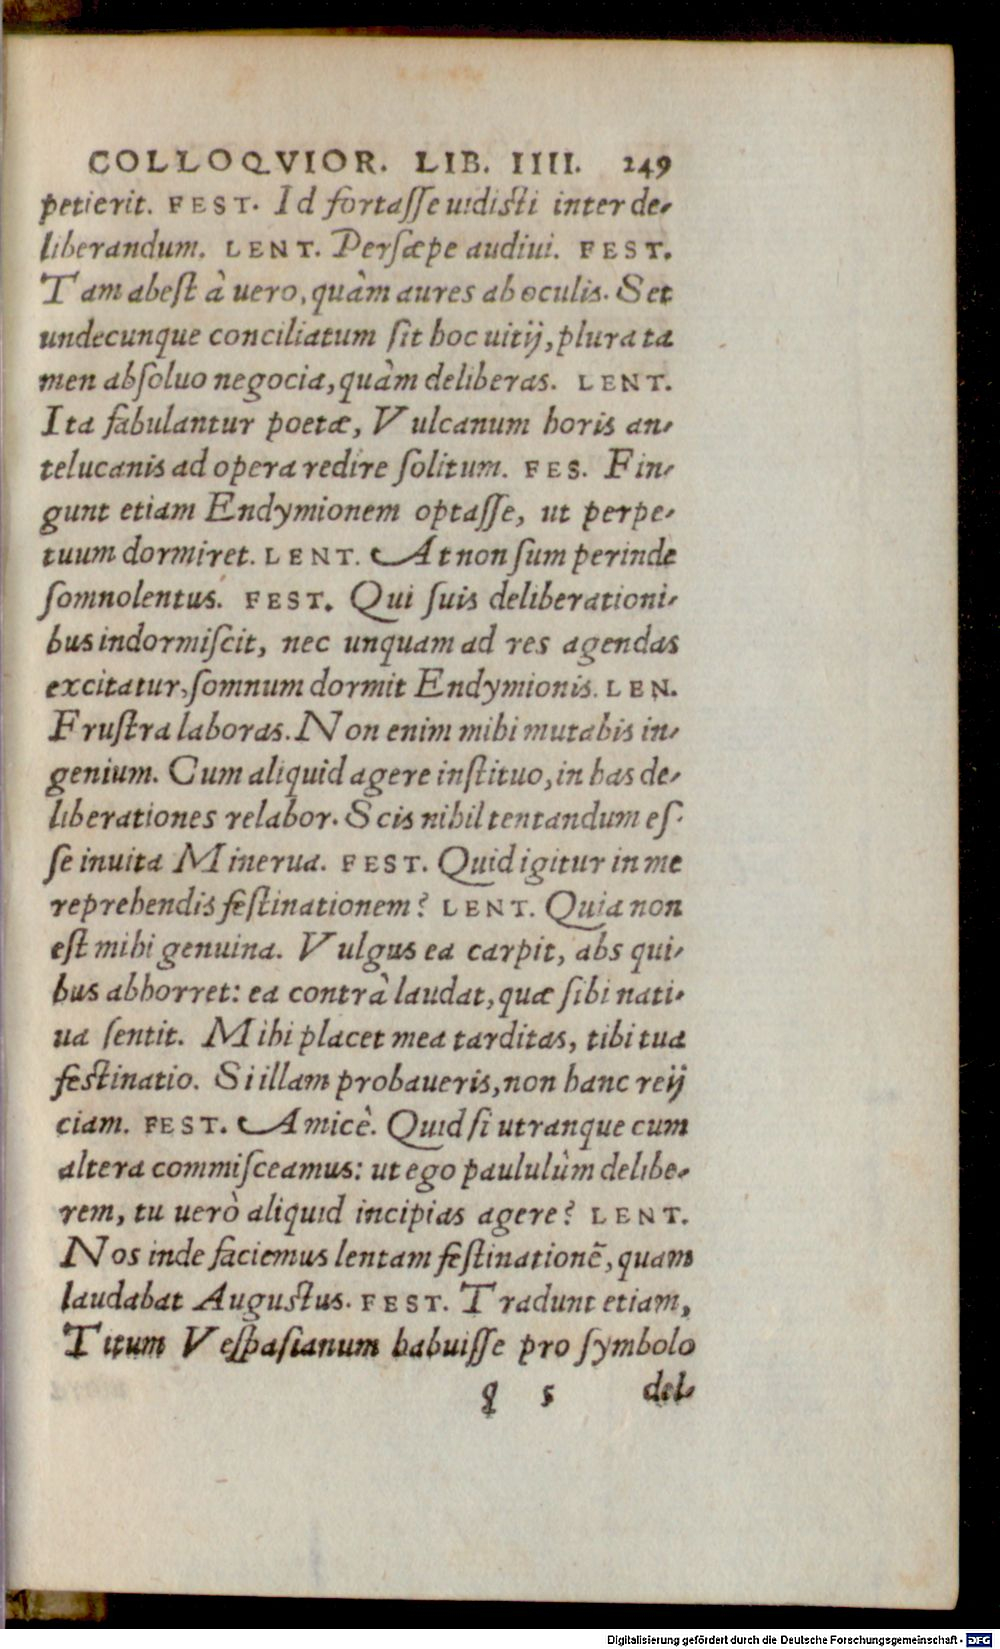 COLLOQVIOR. LIB. IIII. 249
petierit. FEST. Id fortasse uidisti inter de-
liberandum. LENT. Persæpe audiui. FEST.
Tam abest à uero, quàm aures ab oculis. Set
undecunque conciliatum sit hoc uitij, plura ta
men absoluo negocia, quàm deliberas. LENT.
Ita fabulantur poetæ, Vulcanum horis an-
telucanis ad opera redire solitum. FES. Fin-
gunt etiam Endymionem optasse, ut perpe-
tuum dormiret. LENT. At non sum perinde
somnolentus. FEST. Qui suis deliberationi-
bus indormiscit, nec unquam ad res agendas
excitatur, somnum dormit Endymionis. LEN.
Frustra laboras. Non enim mihi mutabis in-
genium. Cum aliquid agere instituo, in has de-
liberationes relabor. Scis nihil tentandum es-
se inuita Minerua. FEST. Quid igitur in me
reprehendis festinationem? LENT. Quia non
est mihi genuina. Vulgus ea carpit, abs qui-
bus abhorret: ea contrà laudat, quæ sibi nati-
ua sentit. Mihi placet mea tarditas, tibi tua
festinatio. Si illam probaueris, non hanc reij
ciam. FEST. Amicè. Quid si utranque cum
altera commisceamus: ut ego paululùm delibe-
rem, tu uerò aliquid incipias agere? LENT.
Nos inde faciemus lentam festinationē, quam
laudabat Augustus. FEST. Tradunt etiam,
Titum Vespasianum habuisse pro symbolo
q 5 del-
Digitalisierung gefördert durch die Deutsche Forschungsgemeinschaft - DFG